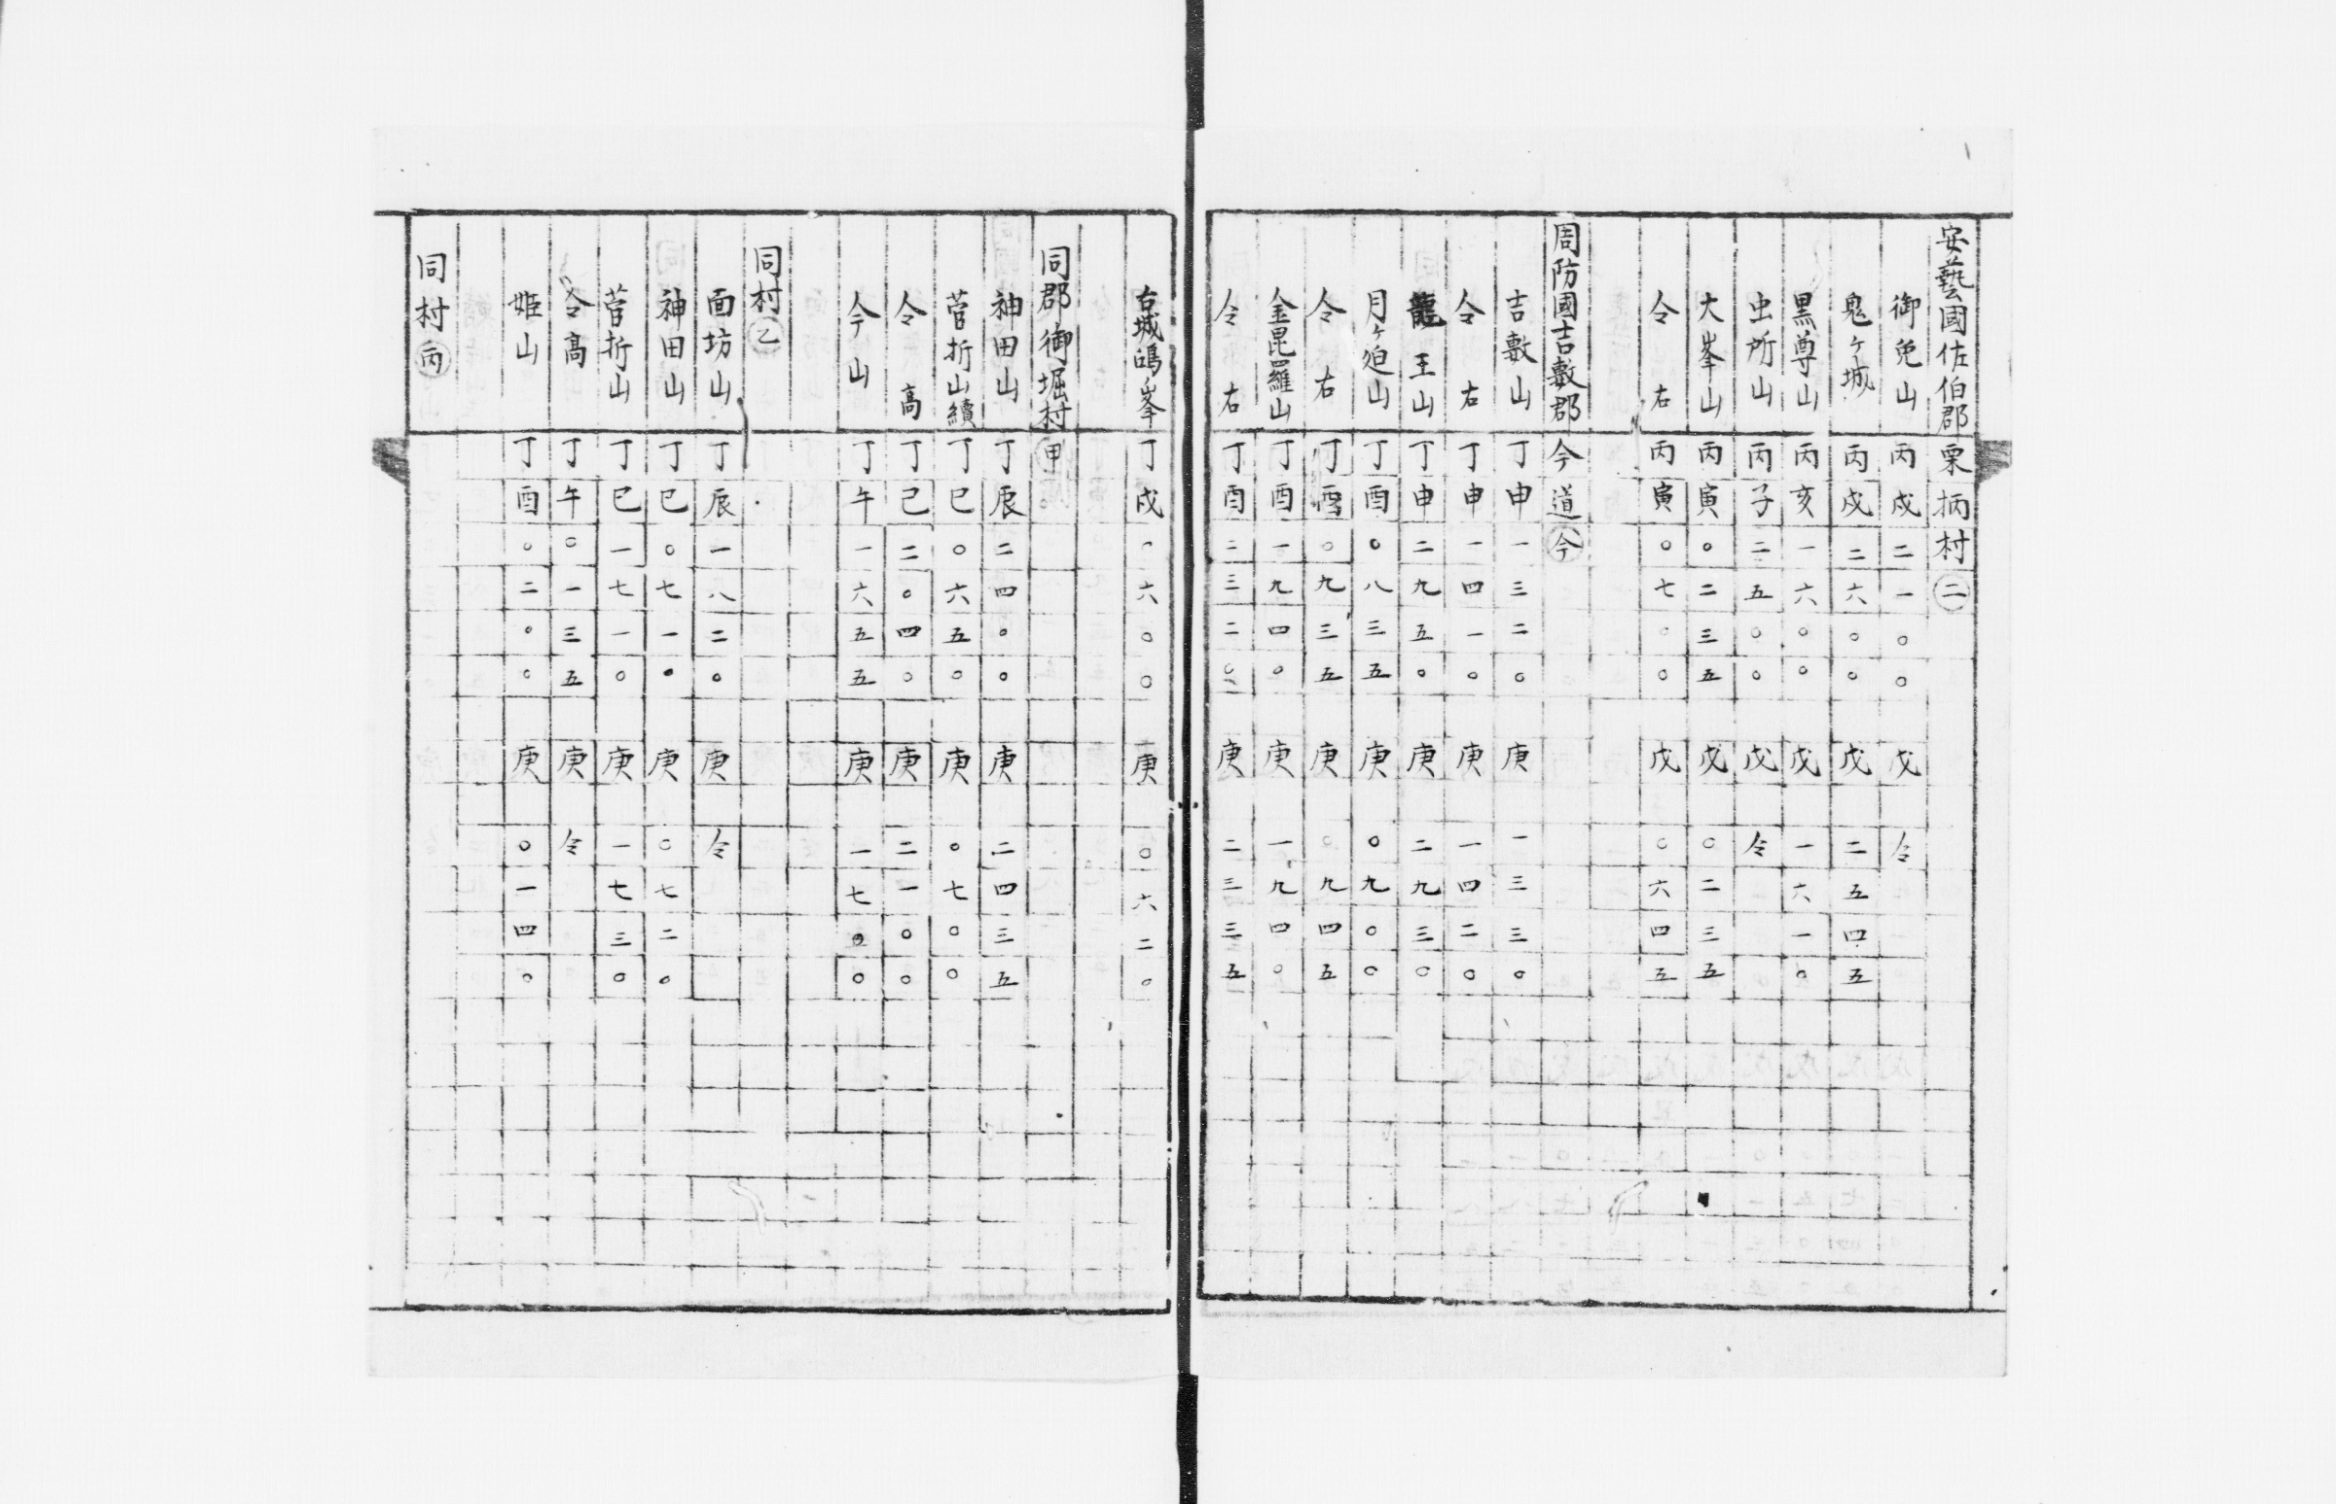 安藝國佐伯郡栗栖村㊁
御免山 丙戌 二一〇〇 戊 仝
鬼ヶ城 丙戌 二六〇〇 戊 二五四五
黒尊山 丙亥 一六〇〇 戊 一六一〇
虫所山 丙子 二五〇〇 戊 仝
大峯山 丙寅 〇二三五 戊 〇二三五
仝右 丙寅 〇七〇〇 戊 〇六四五
周防國吉敷郡今道㋿今
吉敷山 丁申 一三二〇 庚 一三三〇
仝右 丁申 一四一〇 庚 一四二〇
龍王山 丁申 二九五〇 庚 二九三〇
月ヶ迫山 丁酉 〇八三五 庚 〇九〇〇
仝右 丁酉 〇九三五 庚 〇九四五
金昆羅山 丁酉 一九四〇 庚 一九四〇
仝右 丁酉 二三二〇 庚 二三三五
古城鴻峯 丁戌 〇六〇〇 庚 〇六二〇
同郡御堀村㊙甲
神田山 丁辰 二四〇〇 庚 二四三五
菅折山續 丁巳 〇六五〇 庚 〇七〇〇
仝高 丁巳 二〇四〇 庚 二一〇〇
今山 丁午 一六五五 庚 一七〇〇
同村㊚乙
面坊山 丁辰 一八二〇 庚 仝
神田山 丁巳 〇七一〇 庚 〇七二〇
菅折山 丁巳 一七一〇 庚 一七三〇
仝高 丁午 〇一三五 庚 仝
姫山 丁酉 〇二〇〇 庚 〇一四〇
同村丙